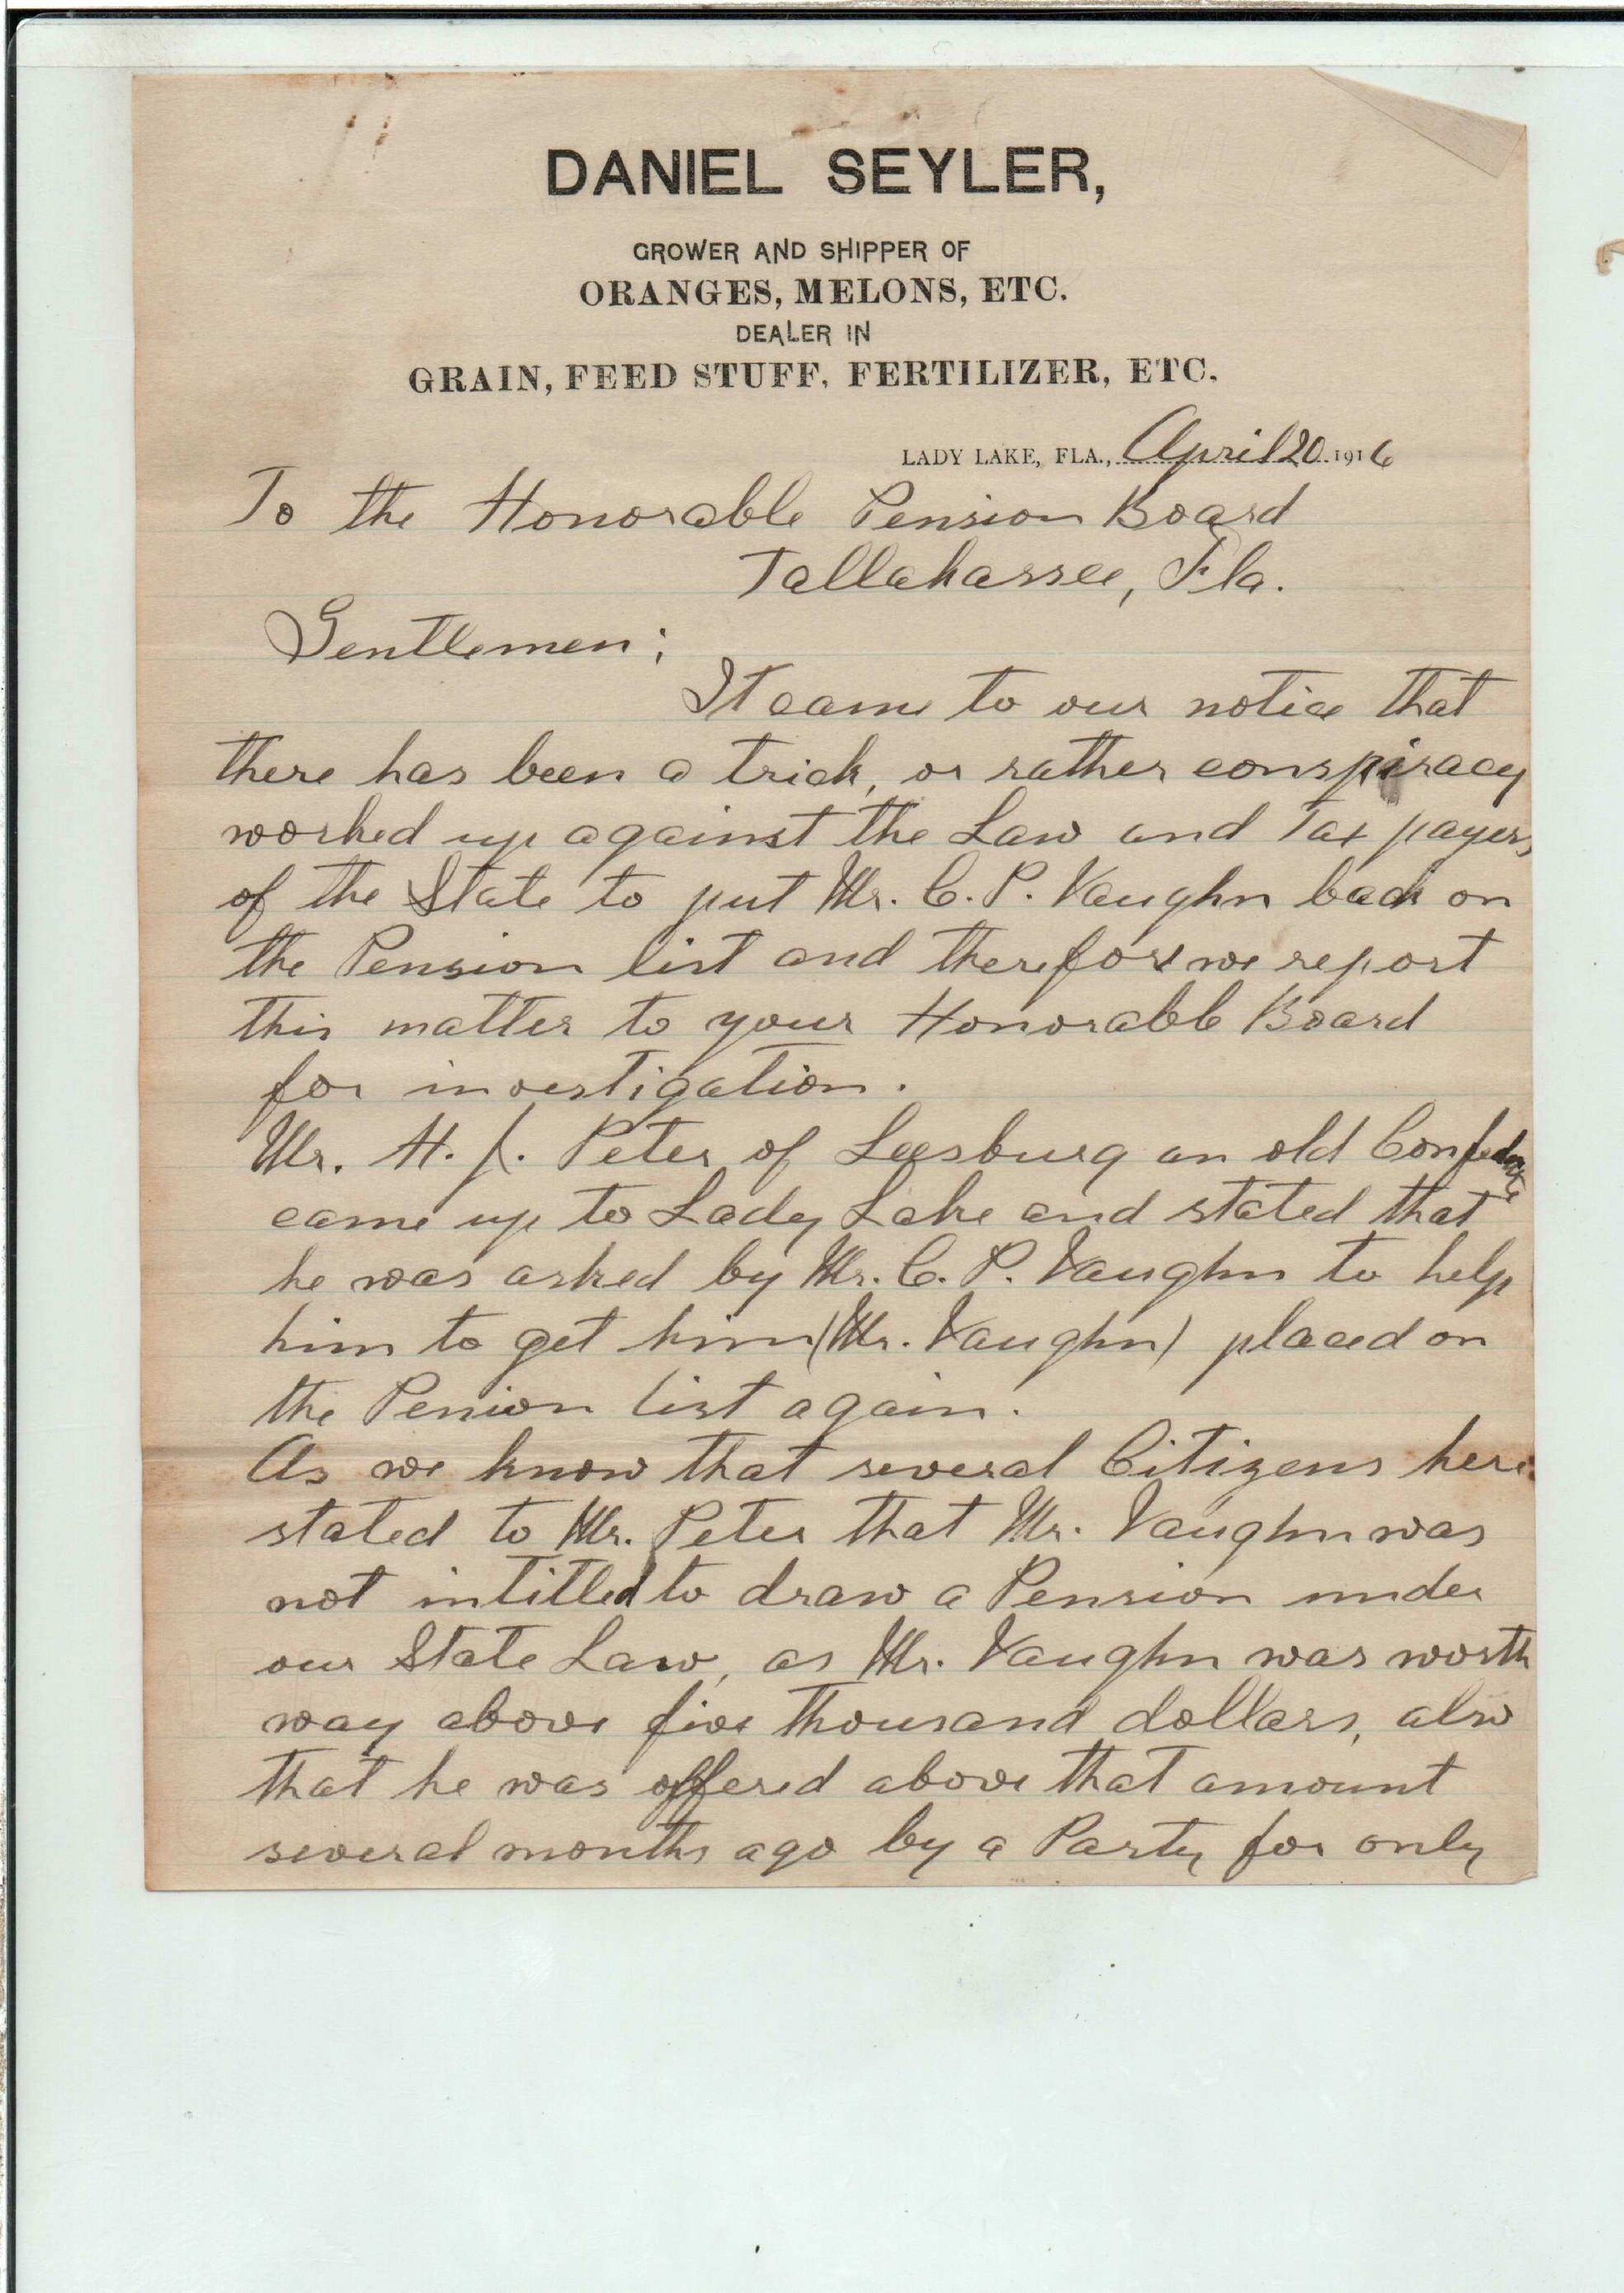 DANIEL SEYLER,
GROWER AND SHIPPER OF
ORANGES, MELONS, ETC.
DEALER IN
GRAIN, FEED STUFF, FERTILIZER, ETC.
LADY LAKE, FLA., April 20 1916
To the Honorable Pension Board
Tallahassee, Fla.
Gentlemen;
It came to our notice that
there has been a trick, or rather conspiracy
worked up against the Law and Tax payers
of the State to put Mr. C. P. Vaughn back on
the Pension list and therefore we report
this matter to your Honorable Board
for investigation.
Mr. H. J. Peter of Leesburg an old Confederate
came up to Lady Lake and stated that
he was asked by Mr. C. P. Vaughn to help
him to get him (Mr. Vaughn) placed on
the Penion list again.
As we know that several Citizens here
stated to Mr. Peter that Mr. Vaughn was
not intitled to draw a Pension under
our State Law, as Mr. Vaughn was worth
way above five thousand dollars, also
that he was offered above that amount
several months ago by a Party for only